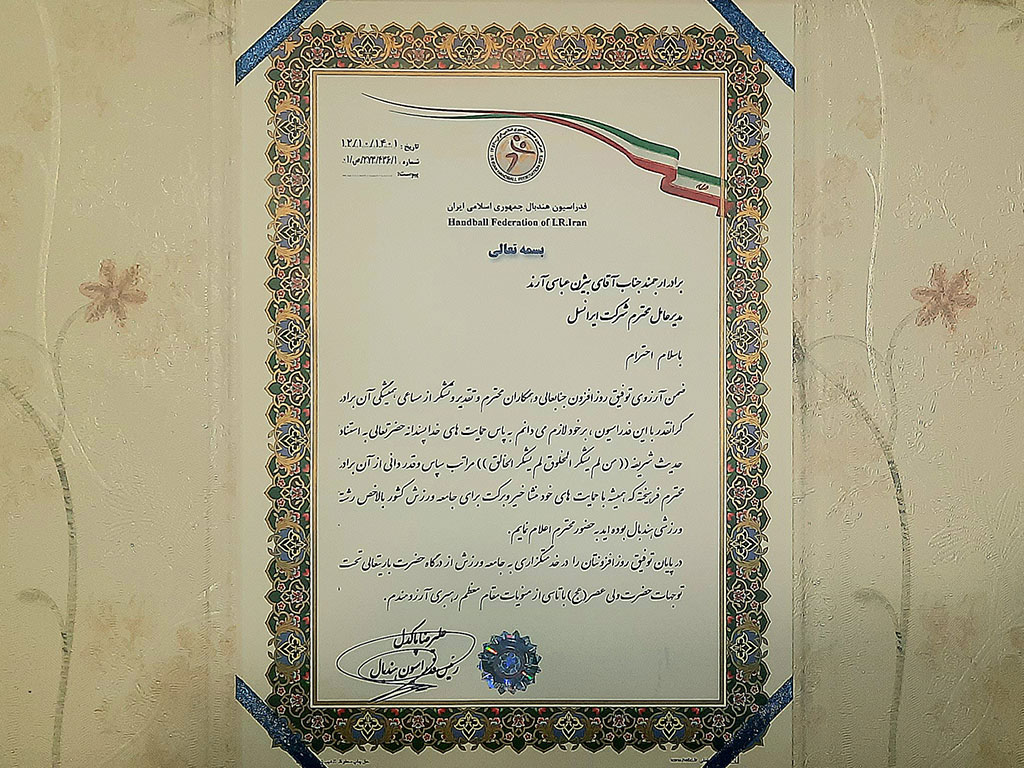 تاریخ : ۱۲/۱۰/۱۴۰۱
شماره : ۰۱/ص/۳۷۳/۴۳۶/۱
پیوست:
فدراسیون هندبال جمهوری اسلامی ایران
Handball Federation of I.R.Iran
بسمه تعالی
برادر ارجمند جناب آقای بیژن عباسی آرند
مدیرعامل محترم شرکت ایرانسل
باسلام احترام
ضمن آرزوی توفیق روز افزون جنابعالی و همکاران محترم و تقدیر و تشکر از مساعی همیشگی آن برادر
گرانقدر با این فدراسیون ، برخود لازم می دانم به پاس حمایت های خداپسندانه حضرتعالی به استناد
حدیث شریفه ((من لم یشکر المخلوق لم یشکر الخالق )) مراتب سپاس و قدردانی از آن برادر
محترم فرهیخته که همیشه با حمایت های خود منشا خیر و برکت برای جامعه ورزش کشور بالاخص رشته
ورزشی هندبال بوده اید به حضور محترم اعلام نمایم.
در پایان توفیق روز افزونتان را در خدمتگزاری به جامعه ورزش از درگاه حضرت باریتعالی تحت
توجهات حضرت ولی عصر (عج) با تاسی از منویات مقام معظم رهبری آرزومندم.
علیرضا پاکدل
رئیس فدراسیون هندبال